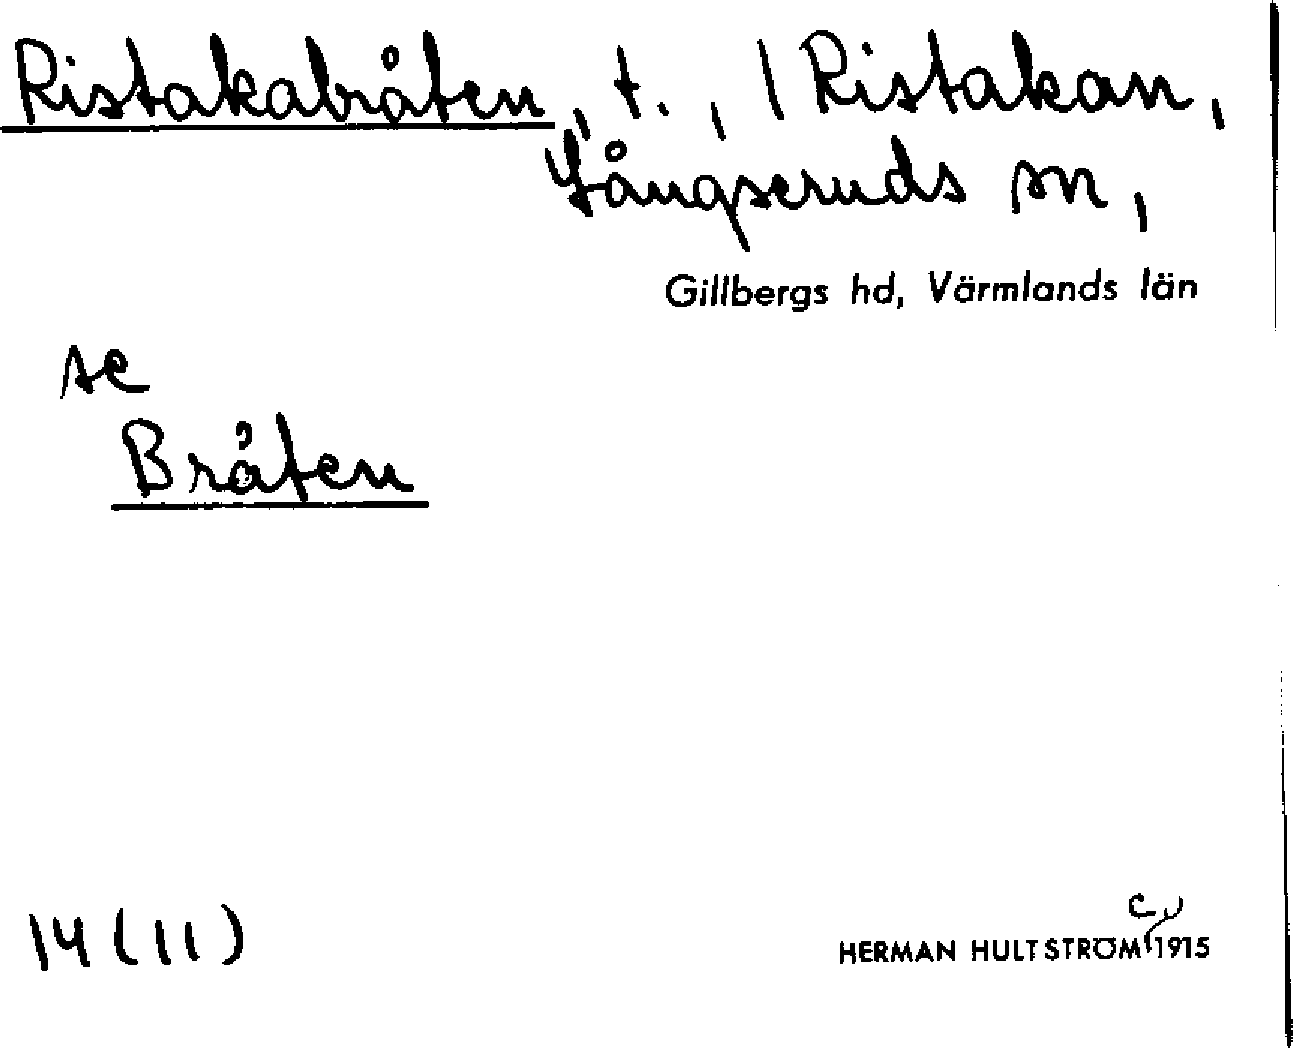 Ristakabråten, t., / Ristakan,
Långseruds sn,
Gillbergs hd, Värmlands län
se
Bråten
14 (11)
HERMAN HULTSTRÖM c. 1915